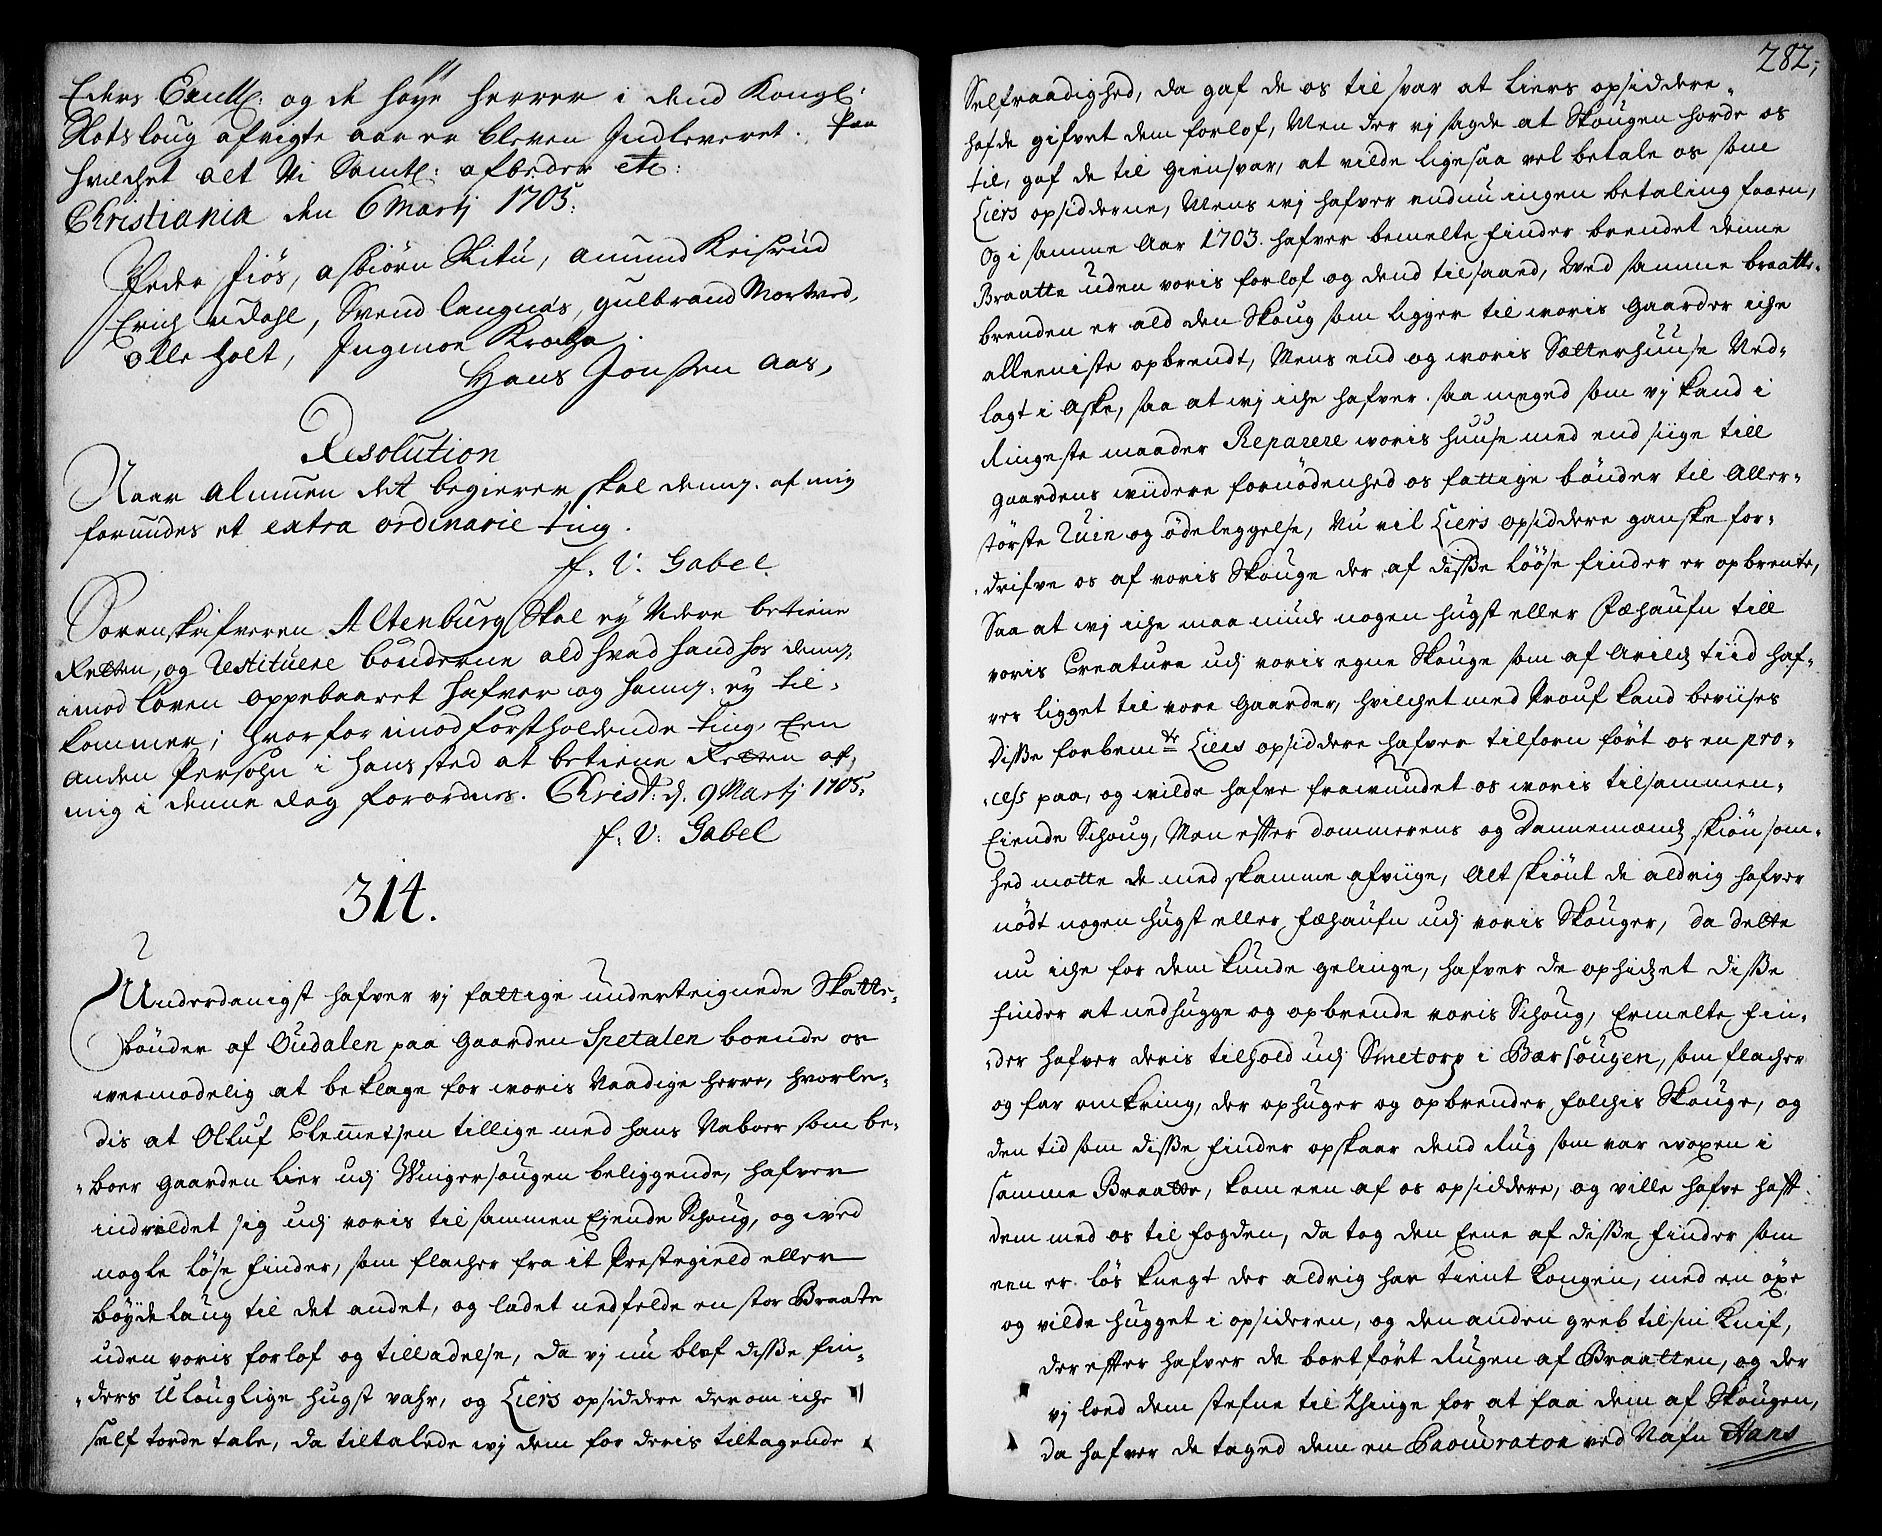 Eders Excell: og de høye herrer i dend Kongl:
Slotsloug afvigte aar er bleven Indleveret. Paa
hvilchet alt Vi Samtl: afbeder etc:
Christiania den 6 Martj 1705.
Peder fiøs, asbiørn Kitu, amund Reisrud
Erich udahl, Svend langnæs, gulbrand Mortved,
olle holt, Ingmoe Krocha.
Hans Jonsen Aas,
Resolution
Naar almuen det begierer skal dennem af mig
forundes et extra ordinarie ting.
f. V. Gabel.
Sorenskrifveren Altenburg Skal ey Videre betiene
Retten, og restituere bønderne ald hvad hand hos dennem
imod loven oppebaaret hafver og hannem ey til-
kommer; hvorfor imod førstholdende ting, Een
anden Persohn i hans sted at betiene Retten af
mig i denne dag forordnes. Christ: d. 9 Martj 1705.
f. V. Gabel
314.
Underdanigst hafver vj fattige underteignede Skatte-
bønder af Oudalen paa gaarden Spetalen boende os
weemodelig at beklage for woris Naadige herre, hvorle-
dis at Olluf Clemetsen tillige med hans Naboer som be-
boer gaarden Lier udj Wingersougen beliggende, hafver
indvildet sig udj voris tilsammen Ejende Schoug, og wed
nogle løse finder, som flacher fra it Prestegield eller
bøyde laug til det andet, og ladet nedfelde en stor Braate
uden voris forlof og tilladelse, da vj nu blef disse fin-
ders Ulouglige hugst vahr, og Liers opsiddere derom iche
self torde tale, da tiltalede wj dem for deris tiltagende
282,
Selfraadighed, da gaf de os til svar at Liers opsiddere
hafde gifvet dem forlof, Men der vj sagde at Skougen hørde os
til, gaf de til giensvar, at vilde ligesaa vel betale os som
Liers opsidderne, Mens wj hafver endnu ingen betaling faaen,
Og i samme Aar 1703. hafver bemelte finder brendet denne
Braatte uden voris forlof og dend tilsaaed, Wed samme braatte
brenden er ald den Skoug som ligger til woris gaarder iche
alleeniste opbrendt, Mens end og woris Sætterhuuse Ned-
lagt i Aske, saa at wj iche hafver saa meged som vj kand i
Ringeste maader Reparere woris huuse med end siige till
gaardens widere fornødenhed os fattige bønder til Aller-
største Ruin og ødeleggelse, Nu vil Liers opsiddere ganske for-
drifve os af voris Skouge der af disse løøse finder er opbrente,
Saa at wj iche maa niude nogen hugst eller Fæhaufn till
voris Creature udj voris egne Skouge som af Arilds tiid haf-
ver ligget til vore gaarder, hvilchet med Prouf kand beviises
Disse forbemte Liers opsiddere hafver tilforn ført os en pro-
cess paa, og wilde hafve frawundet os woris tilsammen-
Ejende Schoug, Men efter dommerens og Dannemænds skiønsom-
hed motte de med skamme afviige, Alt skiønt de aldrig hafver
nødt nogen hugst eller fæhaufn udj voris Skouger, da dette
nu iche for dem kunde gelinge, hafver de ophidset disse
finder at nedhugge og opbrende voris Schoug, Ermelte fin-
der hafver deris tilhold udj Smetorp i Bærsougen, som flacher
og far omkring, der ophuger og opbrender folchis Skouge, og
den tid som disse finder opskaar dend Rug som var woxen i
samme Braatte, kom een af os opsiddere, og ville hafve haft
dem med os til fogden, da tog den Eene af disse finder som
een er løs knegt der aldrig har tient Kongen, med en øxe
og vilde hugget i opsideren, og den anden greb til sin Knif,
der efter hafver de bortført Rugen af Braatten, og der
vj loed dem stefne til Thinge for at faa dem af Skougen,
da hafver de taged dem en Procurator ved Nafn Hans